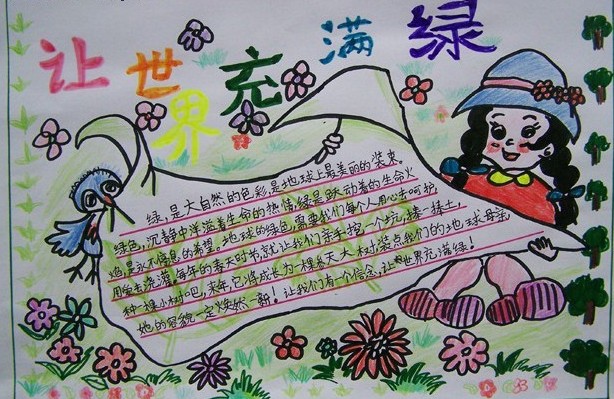 让世界充满绿
绿,是大自然的色彩,是地球上最美的的装束。
绿色,沉静中洋溢着生命的热情,绿是跃动着的生命火
焰,是永不停息的希望。地球的绿色需要我们每个人用心去呵护,
用爱去浇灌,每年的春天时节,就让我们亲手挖一个坑,捧一捧土,
种一棵小树吧,来年,它将成长为一棵参天大树,装点我们的地球母亲,
她的容貌一定焕然一新!让我们有一个信念,让世界充满绿!